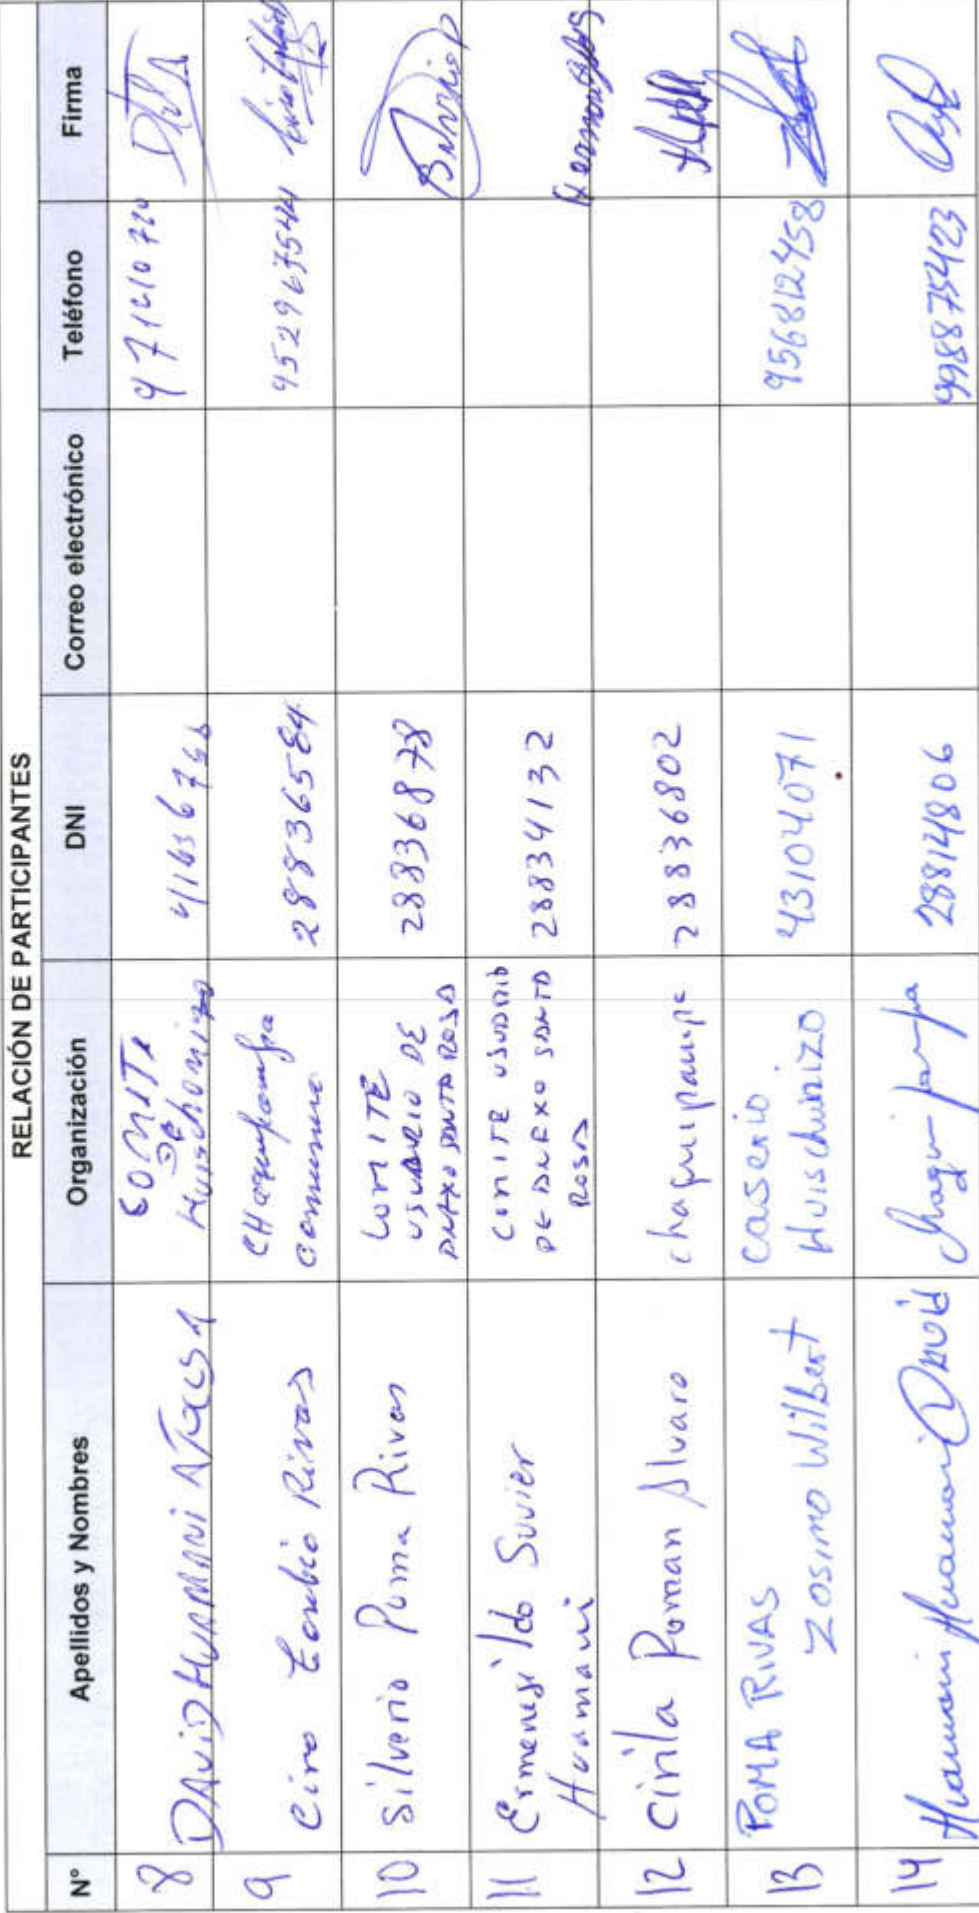 RELACIÓN DE PARTICIPANTES
N° Apellidos y Nombres Organización DNI Correo electrónico Teléfono Firma
8 DAVID HUAMANI ATCCSA COMITE DE Huischonizo 41636746 971210720
9 Ciro Rivas CHaquipampa comunero 28836584 952967544
10 Silverio Poma Rivas COMITE USUARIO DE ANEXO SANTA ROSA 28836878 Silverio
11 Ermenesildo Suvier Huamani COMITE USUARIO DE ANEXO SANTA ROSA 28834132
12 Cirila Roman Alvaro chaquipampa 28836802
13 POMA RIVAS ZOSIMO WILBERT CASERIO HUISCHUNIZO 43104071 956812458
14 Huamani Huamani David Chaquipampa 28814806 998875423